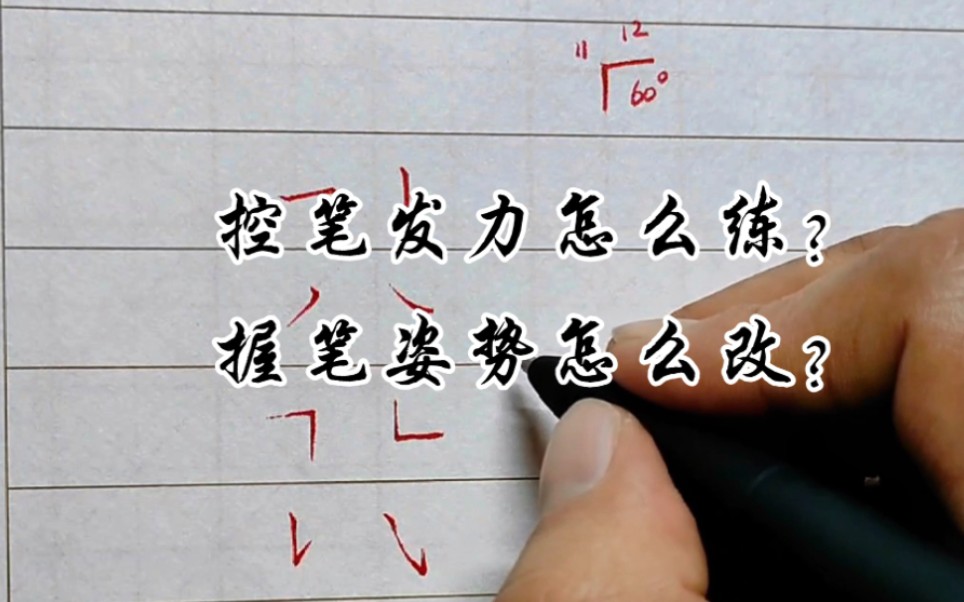 11 12
60°
控笔发力怎么练?
握笔姿势怎么改?